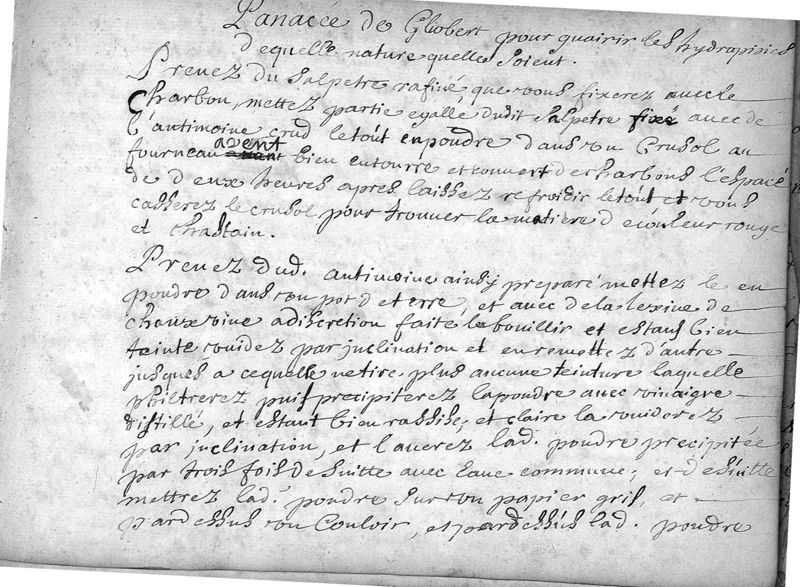 Panacée de Globert pour guairir les hydropisies
dequelle nature quelle soient.
Prenez du Salpetre rafiné que vous fixerez avec le
Charbon, mettez partie egalle dudit Salpetre fixé avec de
L'antimoine crud le tout en poudre dans un Crusol au
fourneau avent bien entourre et couvert de charbons l'espace
de deux heures apres laissez refroidir le tout et vous
casserez le crusol pour trouver la matiere de couleur rouge
et chastain.
Prenez dud. antimoine ainsy preparé mettez le en
poudre dans un pot de terre, et avec de la lexive de
chaux vive a discretion faite le bouillir et estant bien
teinte vuidez par inclination et en remettez d'autre
jusques a ce quelle ne tire plus aucune teinture laquelle
philtrerez puis precipiterez la poudre avec vinaigre
distillé, et estant bien rassise, et claire la vuiderez
par inclination, et laverez lad. poudre precipitée
par trois fois de suitte avec Eaue commune, et de suitte
mettrez lad. poudre sur un papier gris, et
par dessus un Couloir, et par dessus lad. poudre